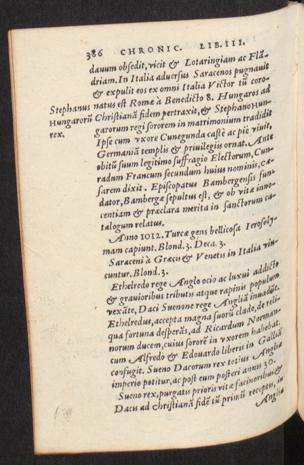 386 CHRONIC. LIB. III.
dauum obsedit, vicit & Lotaringiam ac Flã-
driam. In Italia aduersus Saracenos pugnauit
& expulit eos ex omni Italia Victor tũ coro-
Stephanus natus est Romæ à Benedicto 8. Hungaros ad
Hungarorũ Christianã fidem pertraxit, & Stephano Hun-
rex. garorum regi sororem in matrimonium tradidit
Ipse cum vxore Cunegunda castè ac piè vixit,
Germaniã templis & priuilegiis ornat. Ante
obitũ suum legitimo suffragio Electorum, Cun-
radum Francum secundum huius nominis, cæ-
sarem dixit. Episcopatus Bambergensis fun-
dator, Bambergæ sepultus est, & ob vitæ inno-
centiam & præclara merita in sanctorum ca-
talogum relatus.
Anno 1012. Turcæ gens bellicosa Ierosoly-
mam capiunt. Blond. 3. Deca. 3.
Saraceni à Græcis & Venetis in Italia vin-
cuntur. Blond. 3.
Ethelredo rege Anglo ocio ac luxui addicto
& grauioribus tributis atque rapinis populum
vexãte, Daci Suenone rege Angliã inuadũt.
Ethelredus, accepta magna suorũ clade, de reli-
qua fortuna desperãs, ad Ricardum Norman-
norum ducem, cuius sororẽ in vxorem habebat,
cum Alfredo & Edouardo liberis in Galliã
confugit. Sueno Dacorum rex totius Angliæ
imperio potitur, ac post eum posteri annis 30.
Sueno rex, purgatis prioris vitæ facinoribus &
Dacis ad christianã fidẽ tũ primũ receptis, in
Anglia